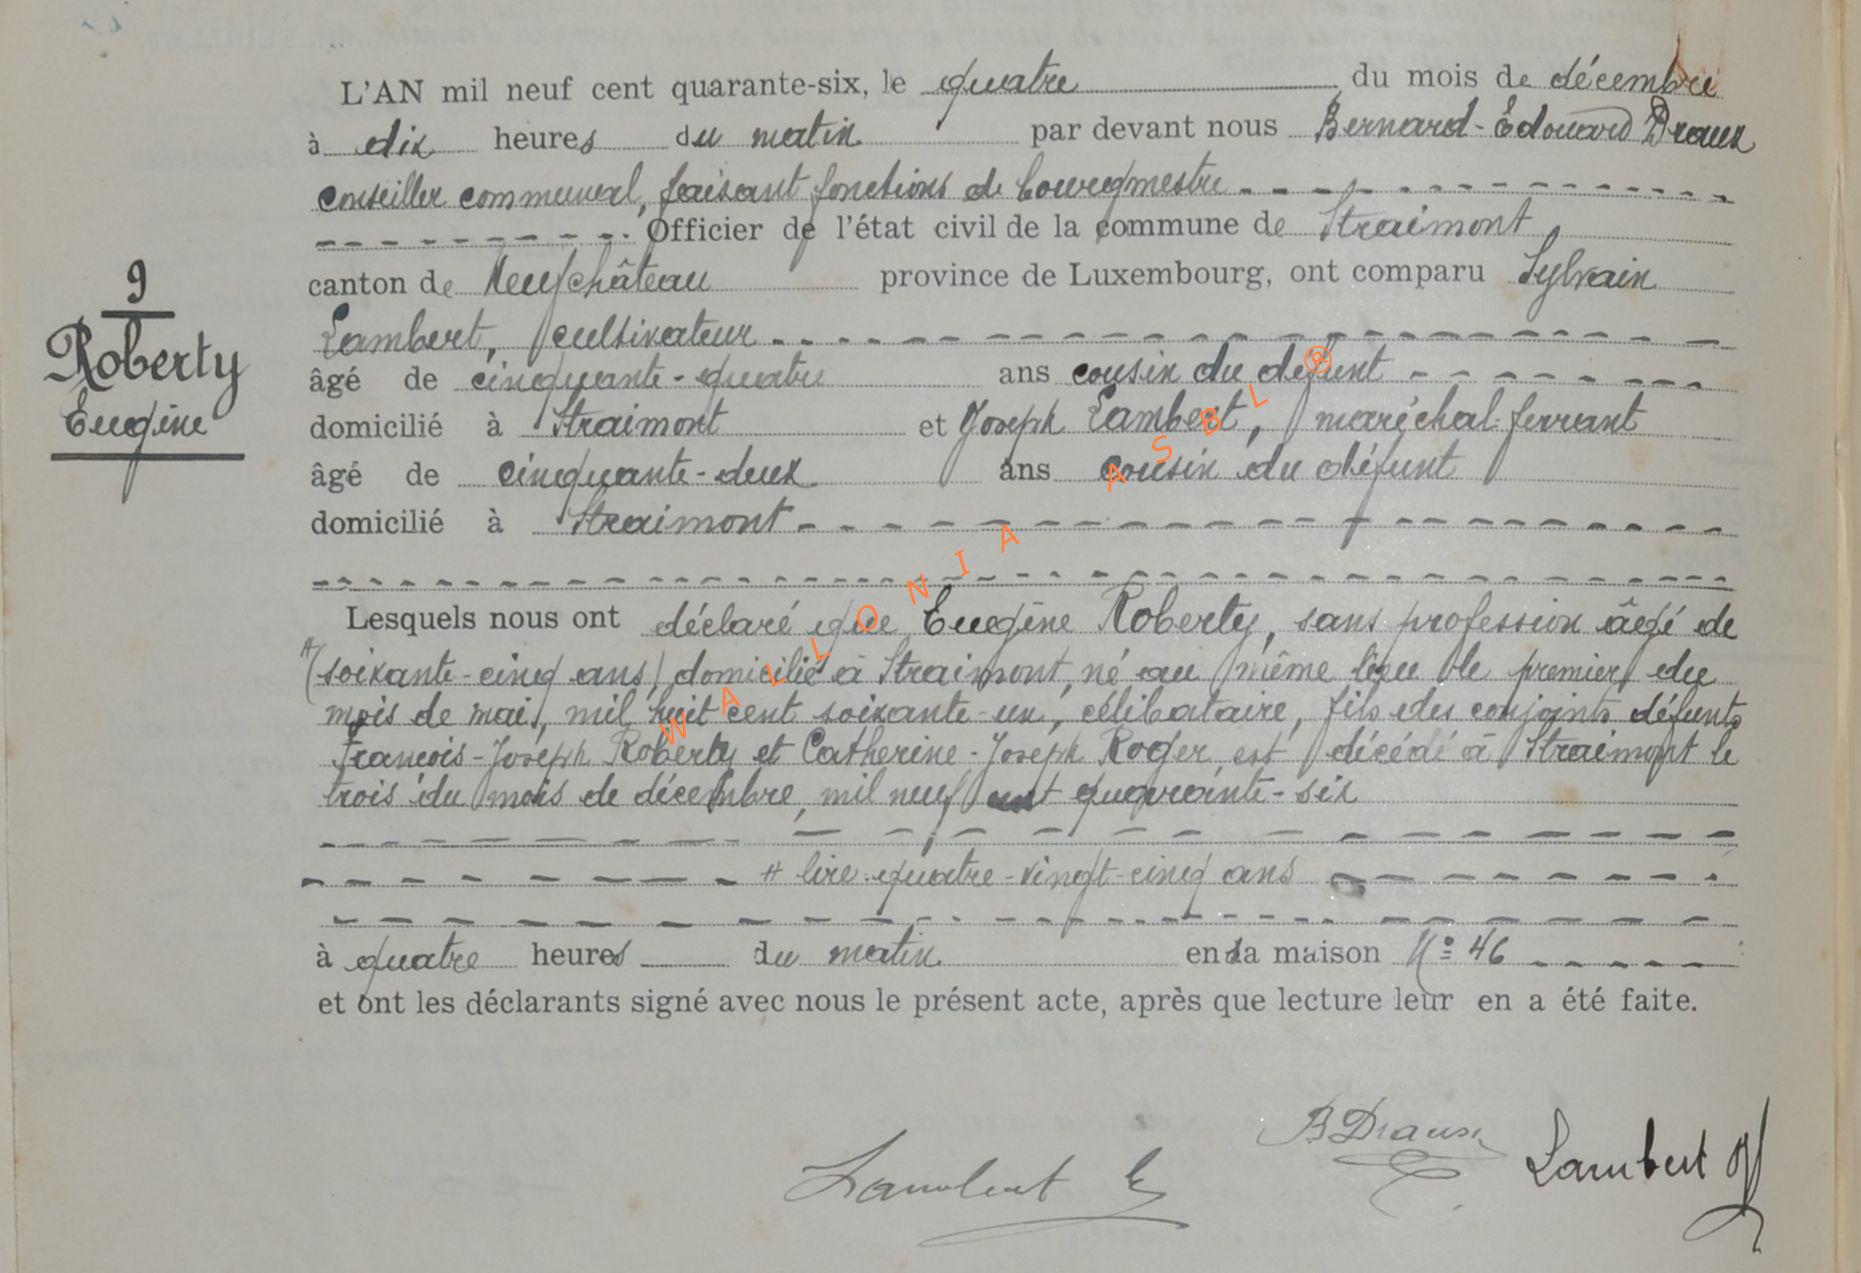 L'AN mil neuf cent quarante-six, le quatre du mois de décembre
à dix heures du matin par devant nous Bernard-Edouard Draux
conseiller communal, faisant fonctions de bourgmestre
Officier de l'état civil de la commune de Straimont,
canton de Neufchâteau province de Luxembourg, ont comparu Sylvain
Lambert, cultivateur
âgé de cinquante-quatre ans cousin du défunt
domicilié à Straimont et Joseph Lambert, maréchal-ferrant
âgé de cinquante-deux ans cousin du défunt
domicilié à Straimont
9
Roberty
Eugène
Lesquels nous ont déclaré que Eugène Roberty, sans profession âgé de
#(soixante-cinq ans) domicilié à Straimont, né au même lieu le premier du
mois de mai, mil huit cent soixante-un, célibataire, fils des conjoints défunts
François-Joseph Roberty et Catherine-Joseph Roger, est décédé à Straimont le
trois du mois de décembre, mil neuf cent quarante-six
# lire quatre-vingt-cinq ans
à quatre heures du matin en sa maison N° 46
et ont les déclarants signé avec nous le présent acte, après que lecture leur en a été faite.
Lambert
Lambert
WALLONIA ASBL ®